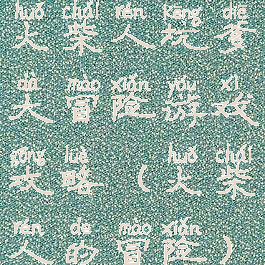 huǒ chái rén kēng diē
火柴人坑爹
dà mào xiǎn yóu xì
大冒险游戏
gōng lüè huǒ chái
攻略(火柴
rén de mào xiǎn
人的冒险)